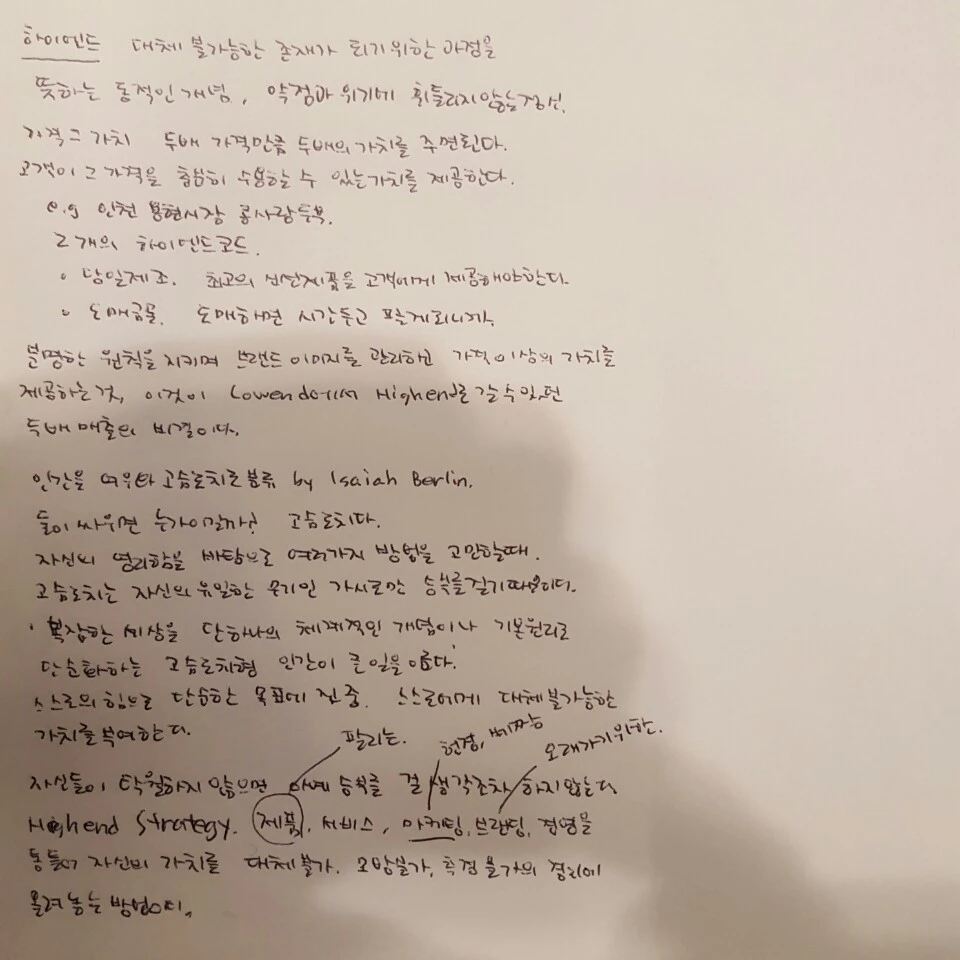 하이엔드 대체 불가능한 존재가 되기 위한 과정을
뜻하는 동적인 개념, 약점과 위기에 휘둘리지 않는 정신.
가격 그 가치 두배 가격만큼 두배의 가치를 주면된다.
고객이 그 가격을 충분히 수용할 수 있는 가치를 제공한다.
e.g 인천 용현시장 콩사랑두부.
2개의 하이엔드코드.
• 당일제조. 최고의 신선제품을 고객에게 제공해야한다.
• 도매금물. 도매하면 시간두고 팔게되니까.
분명한 원칙을 지키며 브랜드 이미지를 관리하고 가격이상의 가치를
제공하는 것, 이것이 Lowend에서 Highend로 갈 수 있던
두배 매출의 비결이다.
인간을 여우와 고슴도치로 분류 by Isaiah Berlin.
둘이 싸우면 누가이길까? 고슴도치다.
자신의 영리함을 바탕으로 여러가지 방법을 고민할때.
고슴도치는 자신의 유일한 무기인 가시로만 승부를 걸기 때문이다.
• 복잡한 세상을 단하나의 체계적인 개념이나 기본원리로
단순화하는 고슴도치형 인간이 큰 일을 이룬다.
스스로의 힘으로 단순한 목표에 집중. 스스로에게 대체불가능한
가치를 부여한다.
팔리는. 현장, 오래가기위한.
자신들이 탁월하지 않으면 아예 승부를 걸 생각조차 하지 않는다
Highend Strategy. 제품, 서비스, 마케팅, 브랜딩, 경영을
통틀어 자신의 가치를 대체불가, 모방불가, 측정 불가의 경지에
올려 놓는 방법이다.